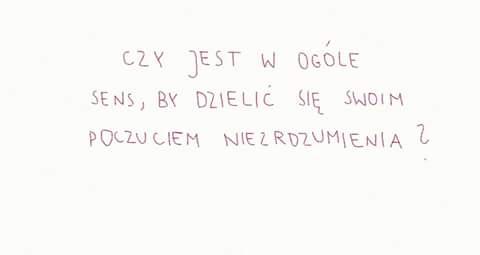 CZY JEST W OGÓLE
SENS, BY DZIELIĆ SIĘ SWOIM
POCZUCIEM NIEZRDZUMIENIA?